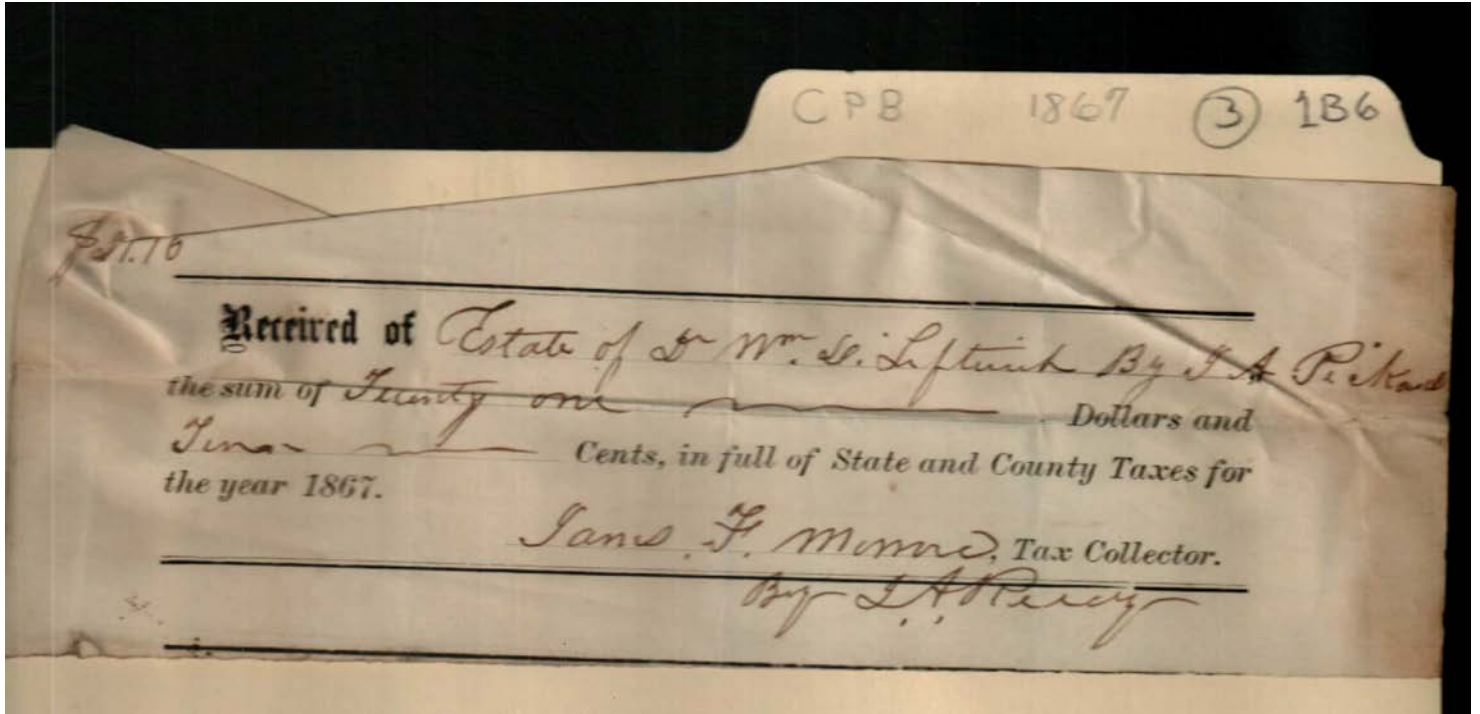 CPB 1867 3 1B6
$21.10
Received of Estate of Dr Wm. D. Leftwich By J A Pickard
the sum of Twenty one Dollars and
Ten Cents, in full of State and County Taxes for
the year 1867.
James F. , Tax Collector.
By